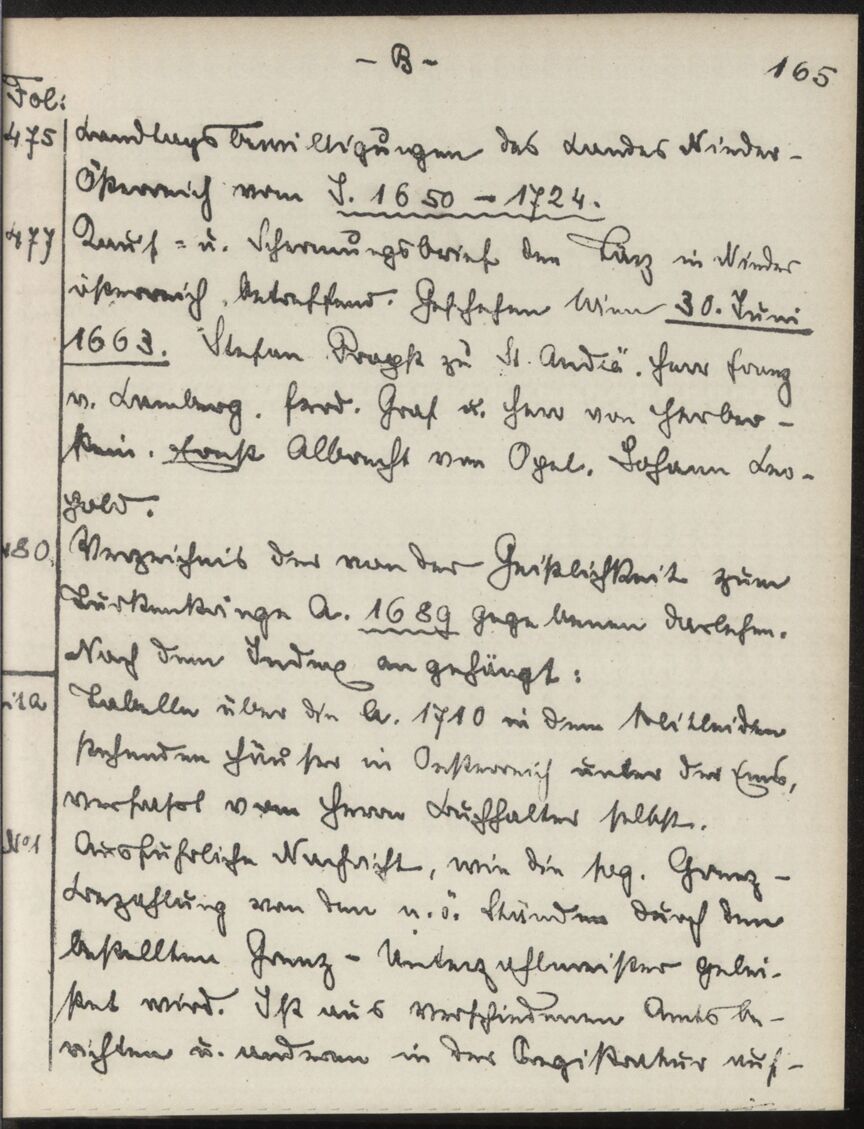 - B -
165
Fol:
475 Landtagsbewilligungen des Landes Nieder-
Österreich vom J. 1650 - 1724.
477 Kauf- u. Schermungsbrief den Täz in Nieder
österreich betreffend. Geschehen Wien 30. Juni
1663. Stefan Propst zu St. Andrä. Herr Franz
v. Lamberg. Ferd. Graf u. Herr von Herber-
stein. Ernst Albrecht von Opel. Johann Leo-
pold.
480. Verzeichnis der von der Geistlichkeit zum
Türkenkriege A. 1689 gegebenen Darlehen.
Nach dem Index angehängt:
Tabelle über die A. 1710 in dem Mitleiden
stehenden Häuser in Oesterreich unter der Enns,
verfasst vom Herrn Buchhalter selbst.
No 1 Ausführliche Nachricht, wie die sog. Grenz-
Bezahlung von den n.ö. Ständen durch den
bestellten Grenz-Unterzahlmeister gelei-
stet wird. Ist aus verschiedenen Amtsbe-
richten u. anderen in der Registratur auf-